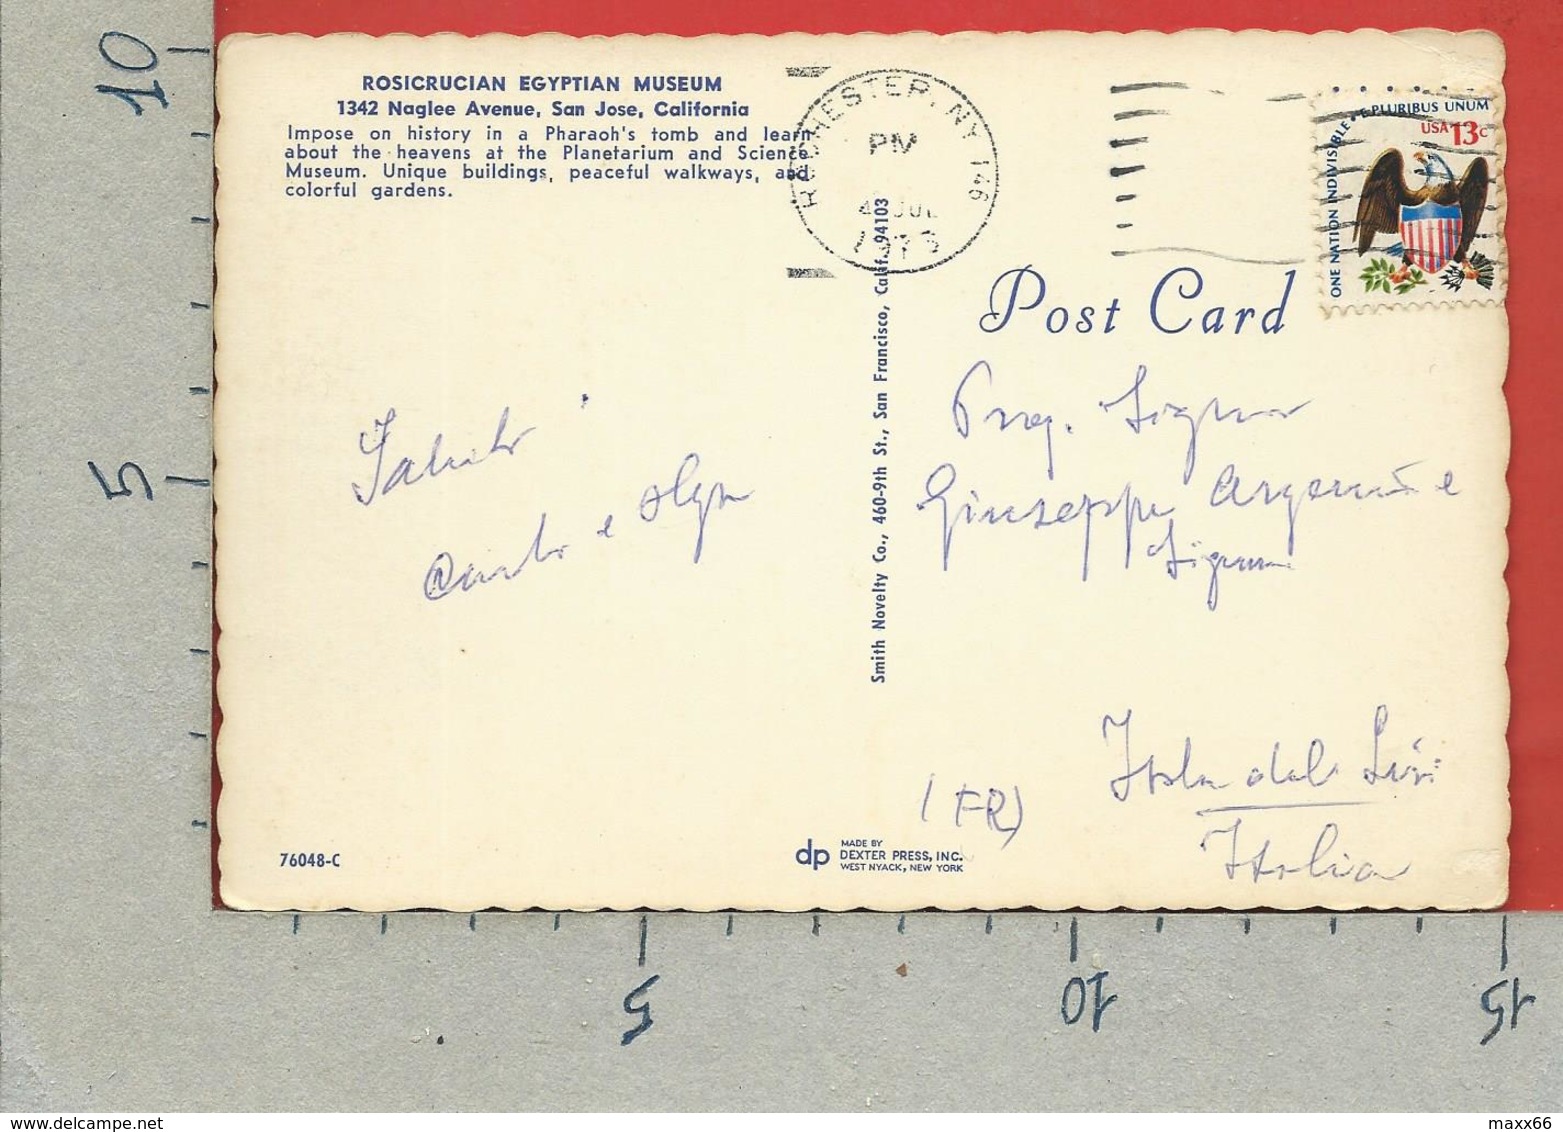 ROSICRUCIAN EGYPTIAN MUSEUM
1342 Naglee Avenue, San Jose, California
Impose on history in a Pharaoh's tomb and learn
about the heavens at the Planetarium and Science
Museum. Unique buildings, peaceful walkways, and
colorful gardens.
ROCHESTER, NY 146
PM
JUL
ONE NATION INDIVISIBLE • E PLURIBUS UNUM
USA 13c
Post Card
Smith Novelty Co., 460-9th St., San Francisco, Calif. 94103
Saluti
e Olga
Preg. Signor
Giuseppe e
Signora
Isola del Liri
(FR)
Italia
76048-C
dp MADE BY
DEXTER PRESS, INC.
WEST NYACK, NEW YORK
10
5
5
10
15
delcampe.net
maxx66